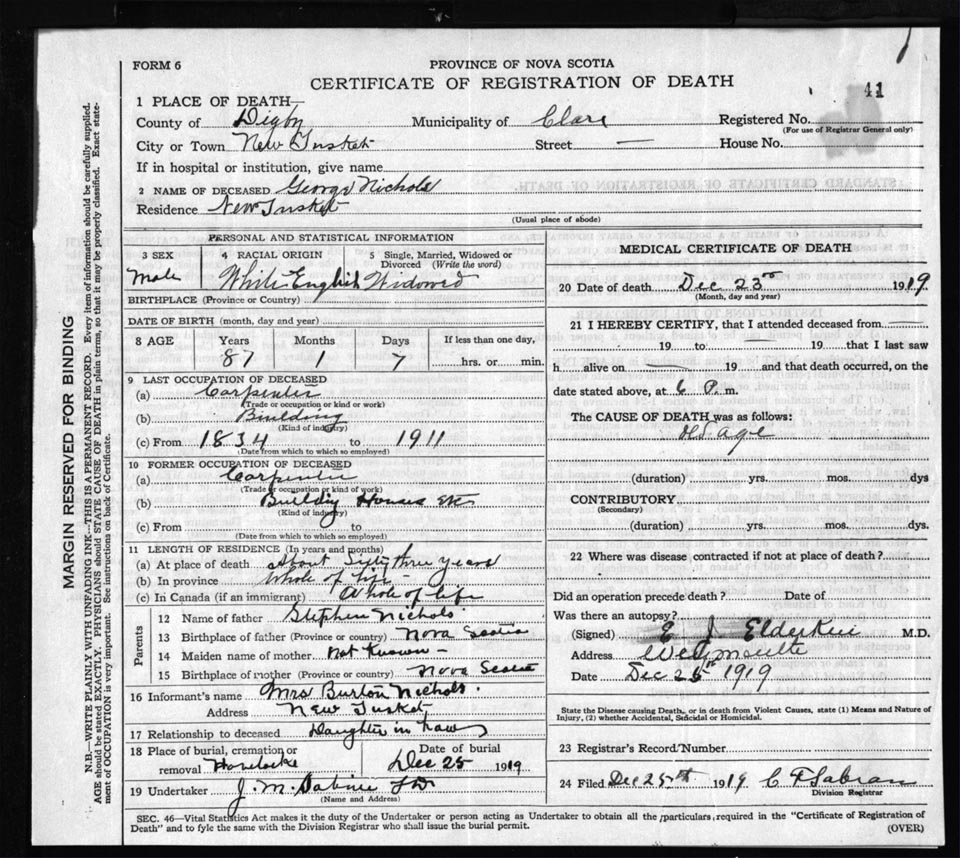 FORM 6
PROVINCE OF NOVA SCOTIA
CERTIFICATE OF REGISTRATION OF DEATH
41
1 PLACE OF DEATH—
County of Digby Municipality of Clare Registered No.
(For use of Registrar General only)
City or Town New Tusket Street — House No.
If in hospital or institution, give name
2 NAME OF DECEASED George Nichols
Residence New Tusket
(Usual place of abode)
PERSONAL AND STATISTICAL INFORMATION
3 SEX 4 RACIAL ORIGIN 5 Single, Married, Widowed or Divorced (Write the word)
Male White English Widowed
BIRTHPLACE (Province or Country)
DATE OF BIRTH (month, day and year)
8 AGE Years Months Days If less than one day,
87 1 7 hrs. or min.
9 LAST OCCUPATION OF DECEASED
(a) Carpenter
(Trade or occupation or kind or work)
(b) Building
(Kind of industry)
(c) From 1834 to 1911
(Date from which to which so employed)
10 FORMER OCCUPATION OF DECEASED
(a) Carpenter
(Trade or occupation or kind of work)
(b) Building Houses Etc
(Kind of industry)
(c) From to
(Date from which to which so employed)
11 LENGTH OF RESIDENCE (In years and months)
(a) At place of death About Sixty three years
(b) In province Whole of life –
(c) In Canada (if an immigrant) Whole of life
Parents
12 Name of father Stephen Nichols
13 Birthplace of father (Province or country) Nova Scotia
14 Maiden name of mother Not Known –
15 Birthplace of mother (Province or country) Nova Scotia
16 Informant's name Mrs Burton Nichols.
Address New Tusket
17 Relationship to deceased Daughter in Law
18 Place of burial, cremation or removal Havelocke Date of burial Dec 25 1919
19 Undertaker J. M. Sabine
(Name and Address)
MEDICAL CERTIFICATE OF DEATH
20 Date of death Dec 23rd 1919.
(Month, day and year)
21 I HEREBY CERTIFY, that I attended deceased from
19 to — 19 that I last saw
h alive on — 19 and that death occurred, on the
date stated above, at 6 P. m.
The CAUSE OF DEATH was as follows:
Old age
(duration) yrs. mos. dys
CONTRIBUTORY
(Secondary)
(duration) yrs. mos. dys.
22 Where was disease contracted if not at place of death?
Did an operation precede death? Date of
Was there an autopsy?
(Signed) E J Elderkin M.D.
Address Weymouth
Date Dec 25th 1919
State the Disease causing Death, or in death from Violent Causes, state (1) Means and Nature of
Injury, (2) whether Accidental, Suicidal or Homicidal.
23 Registrar's Record Number
24 Filed Dec 25th 1919 C F Sabean
Division Registrar
SEC. 46—Vital Statistics Act makes it the duty of the Undertaker or person acting as Undertaker to obtain all the particulars, required in the "Certificate of Registration of
Death" and to fyle the same with the Division Registrar who shall issue the burial permit.
(OVER)
MARGIN RESERVED FOR BINDING
N.B.—WRITE PLAINLY WITH UNFADING INK—THIS IS A PERMANENT RECORD. Every item of information should be carefully supplied.
AGE should be stated EXACTLY. PHYSICIANS should STATE CAUSE OF DEATH in plain terms, so that it may be properly classified. Exact state-
ment of OCCUPATION is very important. See instructions on back of Certificate.